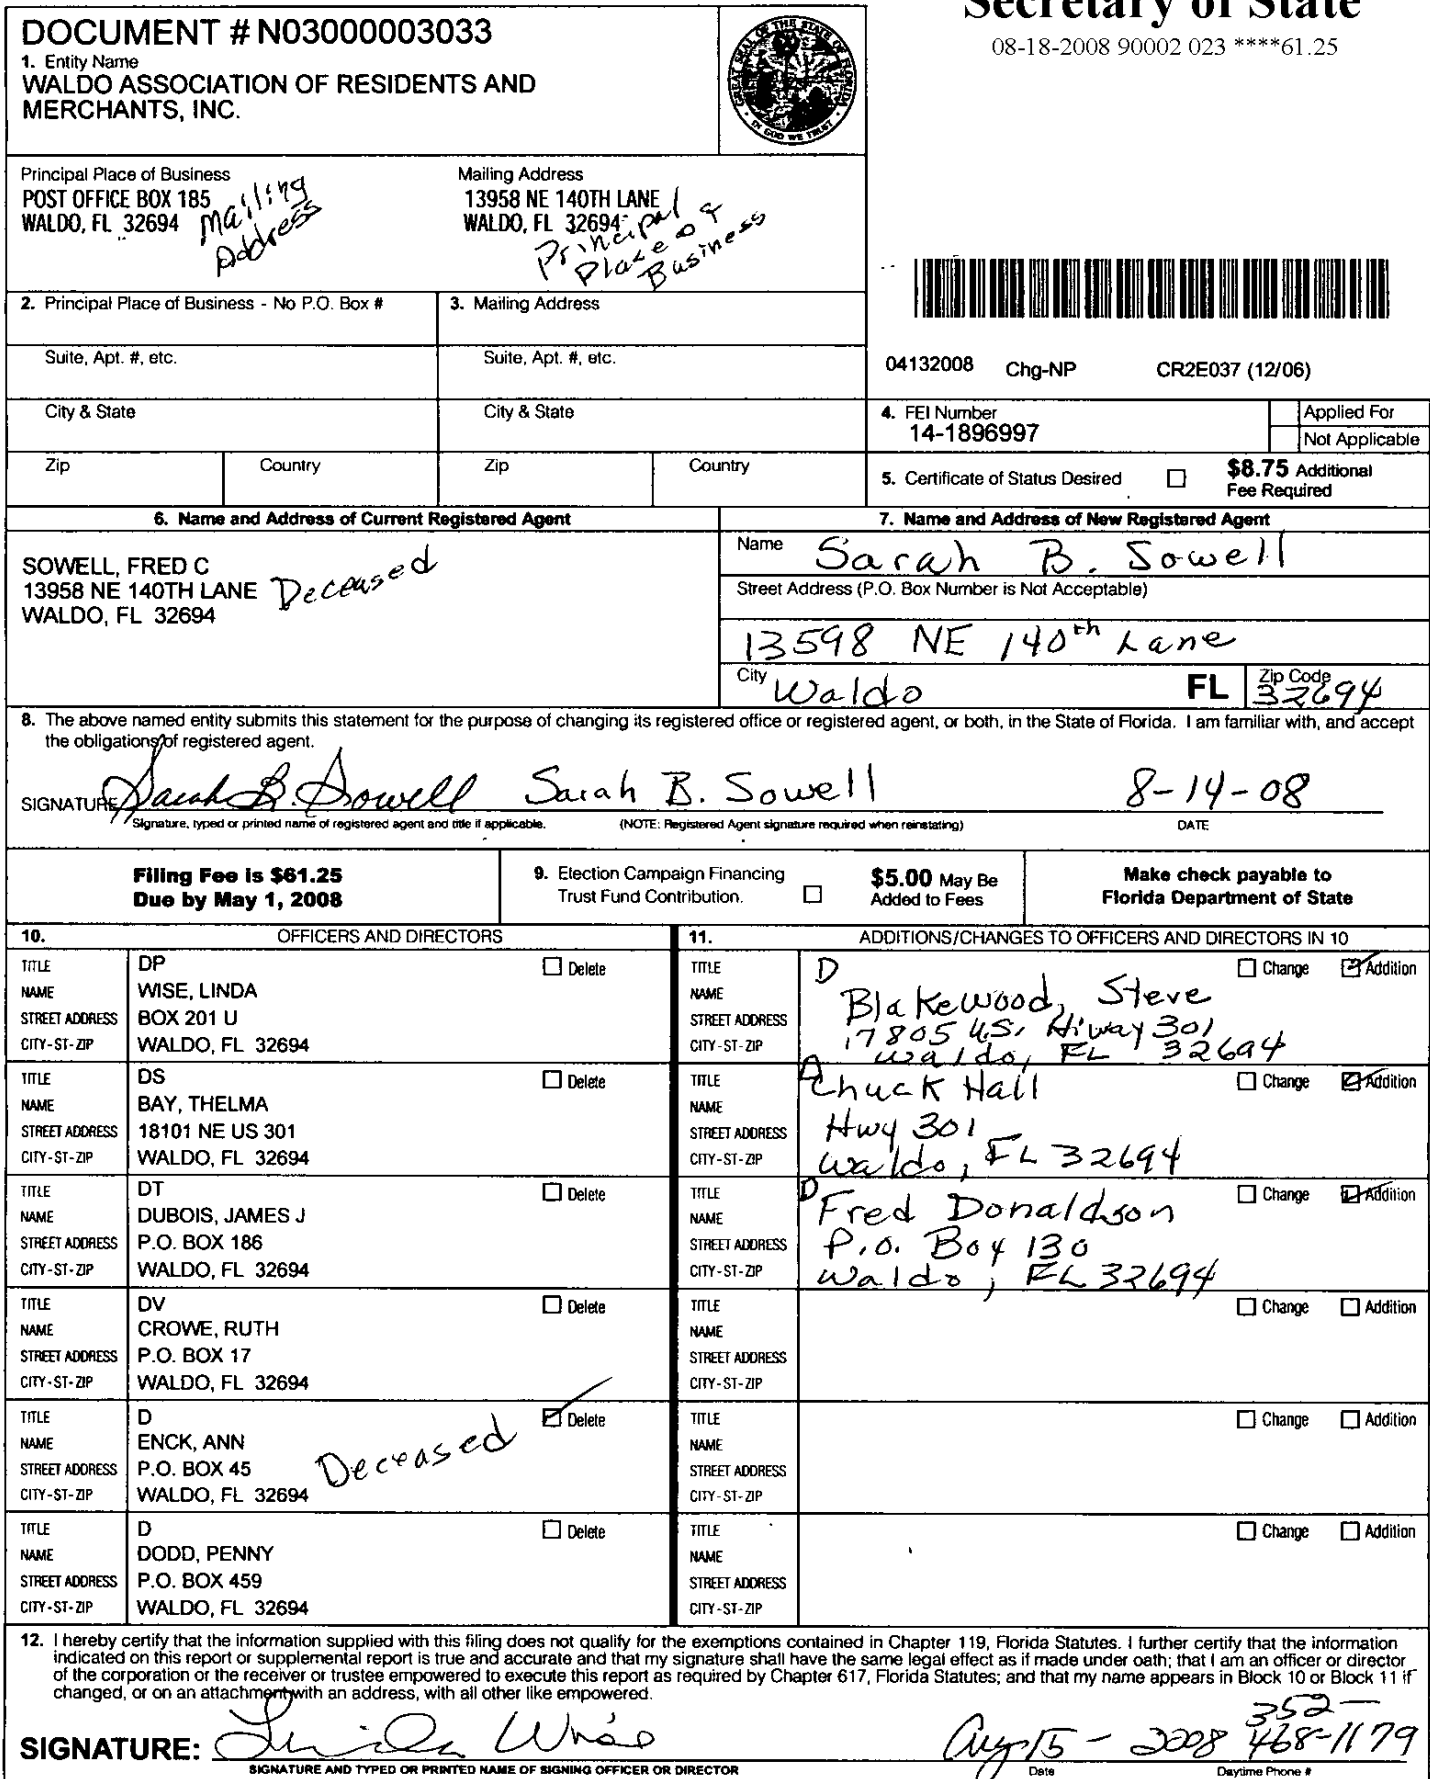 Secretary of State
08-18-2008 90002 023 ****61.25
DOCUMENT # N03000003033
1. Entity Name
WALDO ASSOCIATION OF RESIDENTS AND
MERCHANTS, INC.
GREAT SEAL OF THE STATE OF FLORIDA
IN GOD WE TRUST
Principal Place of Business
POST OFFICE BOX 185
WALDO, FL 32694
Mailing
Address
Mailing Address
13958 NE 140TH LANE
WALDO, FL 32694
Principal
Place of
Business
2. Principal Place of Business - No P.O. Box #
3. Mailing Address
Suite, Apt. #, etc.
Suite, Apt. #, etc.
04132008 Chg-NP CR2E037 (12/06)
City & State
City & State
4. FEI Number
14-1896997
Applied For
Not Applicable
Zip
Country
Zip
Country
5. Certificate of Status Desired
$8.75 Additional
Fee Required
6. Name and Address of Current Registered Agent
7. Name and Address of New Registered Agent
SOWELL, FRED C
13958 NE 140TH LANE
WALDO, FL 32694
Deceased
Name Sarah B. Sowell
Street Address (P.O. Box Number is Not Acceptable)
13598 NE 140th Lane
City Waldo FL Zip Code 32694
8. The above named entity submits this statement for the purpose of changing its registered office or registered agent, or both, in the State of Florida. I am familiar with, and accept
the obligations of registered agent.
SIGNATURE Sarah B. Sowell Sarah B. Sowell 8-14-08
Signature, typed or printed name of registered agent and title if applicable. (NOTE: Registered Agent signature required when reinstating) DATE
Filing Fee is $61.25
Due by May 1, 2008
9. Election Campaign Financing
Trust Fund Contribution.
$5.00 May Be
Added to Fees
Make check payable to
Florida Department of State
10. OFFICERS AND DIRECTORS
11. ADDITIONS/CHANGES TO OFFICERS AND DIRECTORS IN 10
TITLE DP Delete
NAME WISE, LINDA
STREET ADDRESS BOX 201 U
CITY-ST-ZIP WALDO, FL 32694
TITLE D Change Addition
NAME Blakewood, Steve
STREET ADDRESS 17805 U.S. Hiway 301
CITY-ST-ZIP Waldo, FL 32694
TITLE DS Delete
NAME BAY, THELMA
STREET ADDRESS 18101 NE US 301
CITY-ST-ZIP WALDO, FL 32694
TITLE D Chuck Hall Change Addition
NAME
STREET ADDRESS Hwy 301
CITY-ST-ZIP Waldo, FL 32694
TITLE DT Delete
NAME DUBOIS, JAMES J
STREET ADDRESS P.O. BOX 186
CITY-ST-ZIP WALDO, FL 32694
TITLE D Change Addition
NAME Fred Donaldson
STREET ADDRESS P.O. Box 130
CITY-ST-ZIP Waldo, FL 32694
TITLE DV Delete
NAME CROWE, RUTH
STREET ADDRESS P.O. BOX 17
CITY-ST-ZIP WALDO, FL 32694
TITLE Change Addition
NAME
STREET ADDRESS
CITY-ST-ZIP
TITLE D Delete
NAME ENCK, ANN
STREET ADDRESS P.O. BOX 45
CITY-ST-ZIP WALDO, FL 32694
Deceased
TITLE Change Addition
NAME
STREET ADDRESS
CITY-ST-ZIP
TITLE D Delete
NAME DODD, PENNY
STREET ADDRESS P.O. BOX 459
CITY-ST-ZIP WALDO, FL 32694
TITLE Change Addition
NAME
STREET ADDRESS
CITY-ST-ZIP
12. I hereby certify that the information supplied with this filing does not qualify for the exemptions contained in Chapter 119, Florida Statutes. I further certify that the information
indicated on this report or supplemental report is true and accurate and that my signature shall have the same legal effect as if made under oath; that I am an officer or director
of the corporation or the receiver or trustee empowered to execute this report as required by Chapter 617, Florida Statutes; and that my name appears in Block 10 or Block 11 if
changed, or on an attachment with an address, with all other like empowered.
SIGNATURE: Linda Wise Aug 15 - 2008 352-
468-1179
SIGNATURE AND TYPED OR PRINTED NAME OF SIGNING OFFICER OR DIRECTOR Date Daytime Phone #